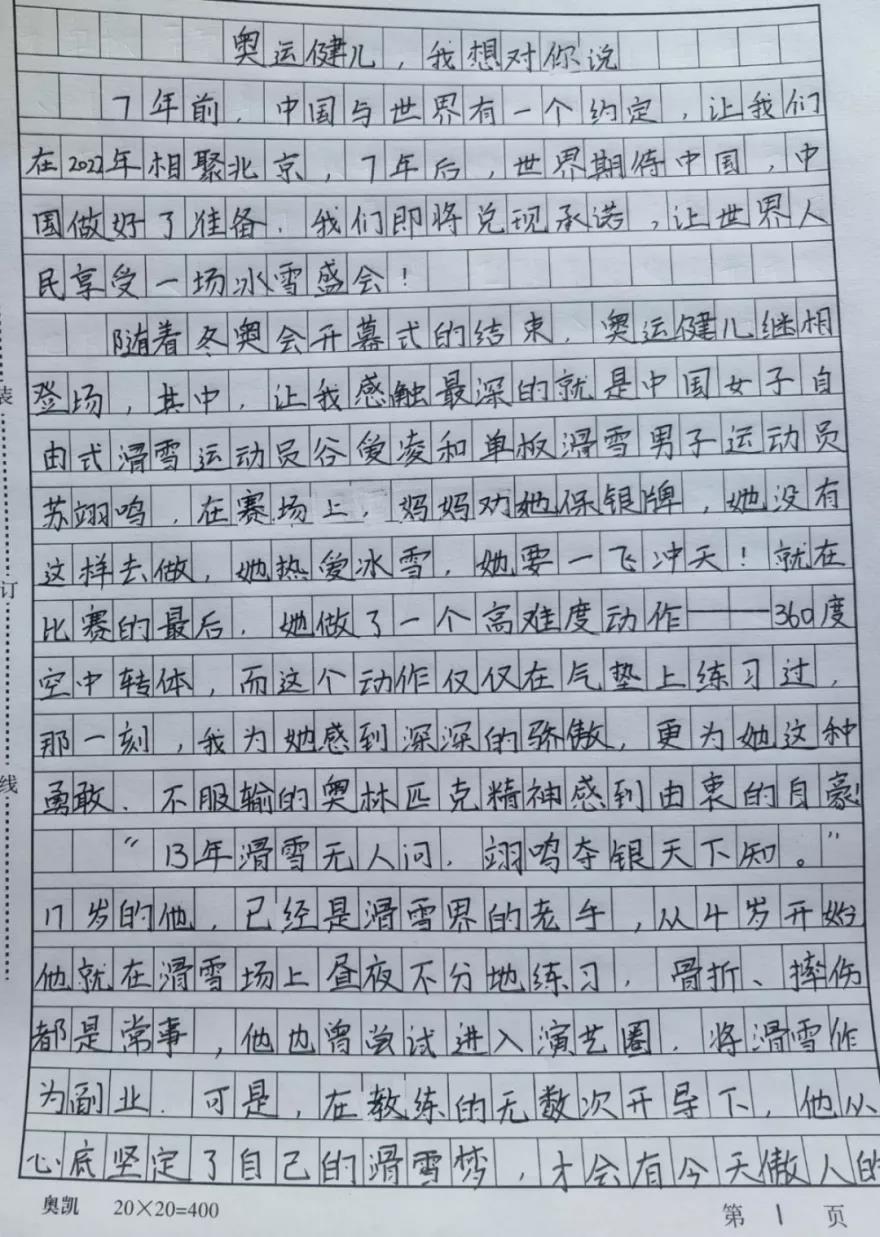 奥运健儿，我想对你说
7年前，中国与世界有一个约定，让我们
在2022年相聚北京，7年后，世界期待中国，中
国做好了准备．我们即将兑现承诺，让世界人
民享受一场冰雪盛会！
随着冬奥会开幕式的结束，奥运健儿继相
登场，其中，让我感触最深的就是中国女子自
由式滑雪运动员谷爱凌和单板滑雪男子运动员
苏翊鸣．在赛场上，妈妈劝她保银牌，她没有
这样去做，她热爱冰雪，她要一飞冲天！就在
比赛的最后，她做了一个高难度动作——360度
空中转体，而这个动作仅仅在气垫上练习过，
那一刻，我为她感到深深的骄傲，更为她这种
勇敢．不服输的奥林匹克精神感到由衷的自豪！
“13年滑雪无人问，翊鸣夺银天下知。”
17岁的他，已经是滑雪界的老手，从4岁开始
他就在滑雪场上昼夜不分地练习，骨折、摔伤
都是常事，他也曾尝试进入演艺圈，将滑雪作
为副业．可是，在教练的无数次开导下，他从
心底坚定了自己的滑雪梦，才会有今天傲人的
装
订
线
奥凯 20×20=400 第 1 页